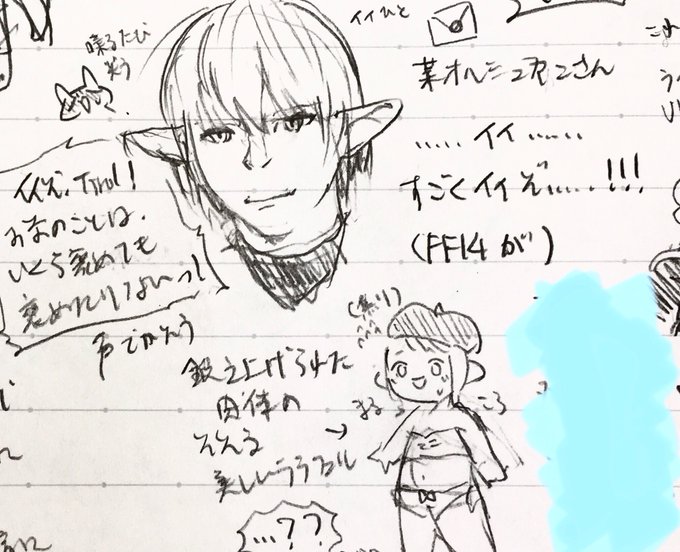 喋るたび
笑う
イイひと
某オルシュファンさん
……イイ……
すごくイイぞ……!!!
(FF14が)
イイぞ、Tirol!
お前のことは、
いくら褒めても
褒めたりないっ!
声でかそう
(焦り)
鍛え上げられた
肉体の
美しいララフェル
→
まる
ころ
…??